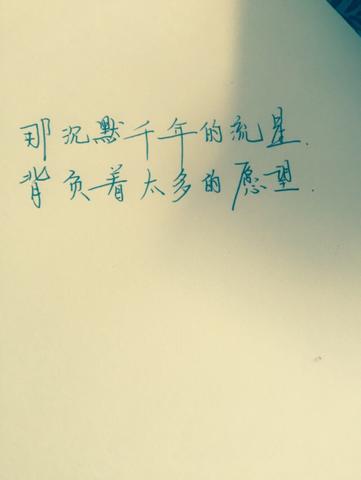 那沉默千年的流星.
背负着太多的愿望.